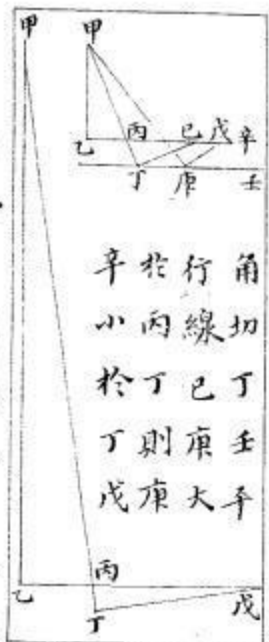 甲
甲
乙 丙 已 戊 辛
丁 庚 壬
角切丁壬平
行線已庚大
於丙丁則庚
辛小於丁戊
丙
乙 丁 戊